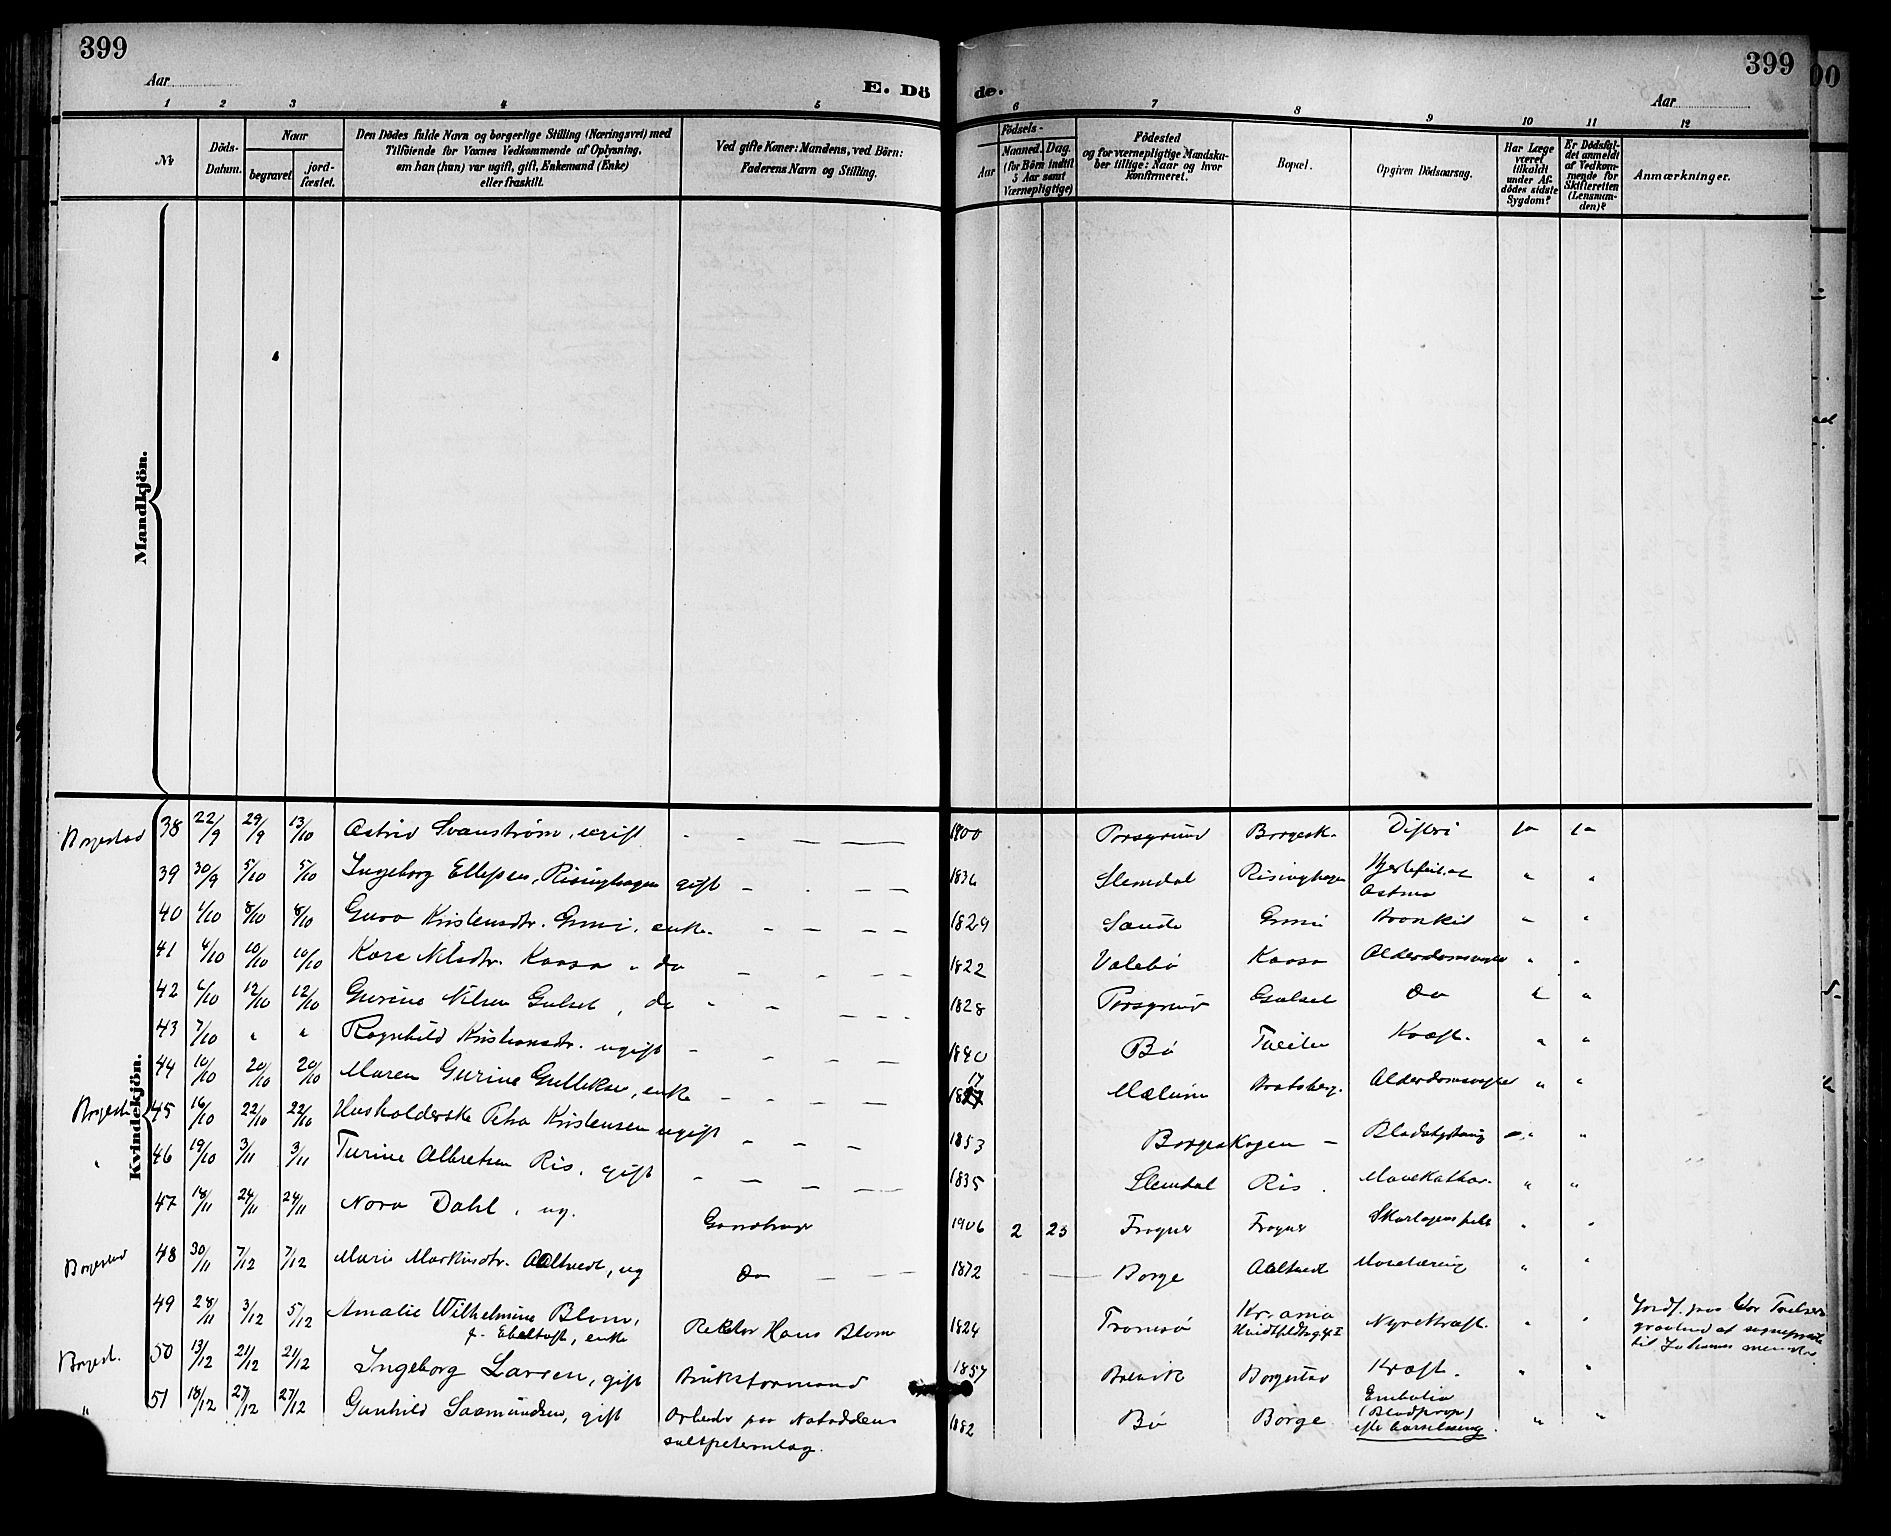 399
399
Aar
E. Dö
de.
Aar
1 2 3 4 5 6 7 8 9 10 11 12
No
Döds-Datum.
Naar
begravet
jord-fæstet.
Den Dödes fulde Navn og borgerlige Stilling (Næringsvei) med
Tilföiende for Voxnes Vedkommende af Oplysning,
om han (hun) var ugift, gift, Enkemand (Enke)
eller fraskilt.
Ved gifte Koner: Mandens, ved Börn:
Faderens Navn og Stilling.
Födsels-
Aar
Maaned. Dag.
(for Börn indtil
5 Aar samt
Værnepligtige)
Födested
og for værnepligtige Mandska-
ber tillige: Naar og hvor
konfirmeret.
Bopæl.
Opgiven Dödsaarsag.
Har Læge
været
tilkaldt
under Af-
dödes sidste
Sygdom?
Er Dödsfal-
det anmeldt
af Vedkom-
mende for
Skifteretten
(Lensman-
den)?
Anmærkninger.
Mandkjön.
Kvindekjön.
Borgestad 38 22/9 29/9 13/10 Astrid Svanström, ugift 1900 Porsgrund Borgesk. Difteri ja ja
39 30/9 5/10 5/10 Ingeborg Ellefsen, Risinghagen gift 1836 Slemdal Risinghagen Hjertefeil og
Astma
40 1/10 8/10 8/10 Guro Kristensdtr. Grini, enke. 1829 Sande Grini Bronkit
41 4/10 10/10 10/10 Kare Nilsdtr. Kaasa " do 1822 Valebö Kaasa Alderdomssvaghed
42 6/10 12/10 12/10 Gurine Nilsen Gulset, do 1828 Porsgrund Gulset Do
43 7/10 " " Ragnhild Kristiansdtr. ugift 1840 Bö Kræft.
44 10/10 20/10 20/10 Maren Gurine Gulliksen, enke 17 Mælum Bratsberg. Alderdomssvaghed
Borgest. 45 16/10 22/10 22/10 Husholderske Petra Kristensen ugift 1853 Borgeskogen
" 46 19/10 3/11 3/11 Turine Albretsen Ris, gift 1835 Slemdal Ris Mavekathar.
47 18/11 24/11 24/11 Nora Dahl, ug. Gaardbruger 1906 2 23 Frogner Frogner Skarlagensfeber
Borgestad 48 30/11 7/12 7/12 Marie Martinsdtr. Aaltvedt, ug Do 1872 Borge Aaltvedt
49 28/11 3/12 5/12 Amalie Wilhelmine Blom,
f. Ebeltoft, enke Rektor Hans Blom 1824 Tromsö Kr.ania Nyrekræft.
Borgest. 50 13/12 21/12 21/12 Ingeborg Larsen, gift Brukformand 1857 Brevik Borgestad Kræft.
" 51 18/12 27/12 27/12 Gunhild Saamundsen, gift Arbeider paa Notoddens
saltpeteranlæg. 1882 Bö Borge Embolia
(Blodprop)
efter barselseng.